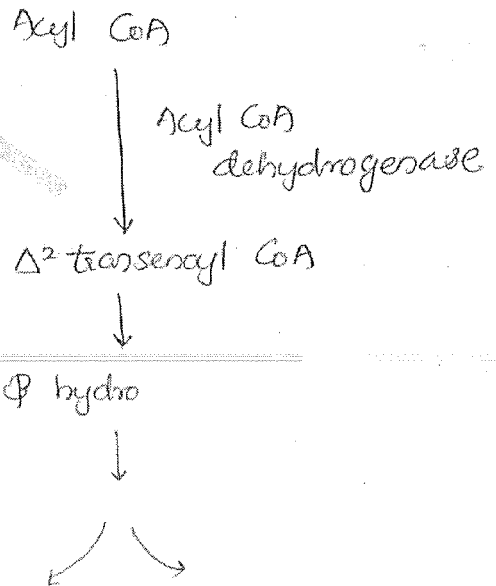 Acyl CoA
Acyl CoA
dehydrogenase
Δ² transenoyl CoA
hydro